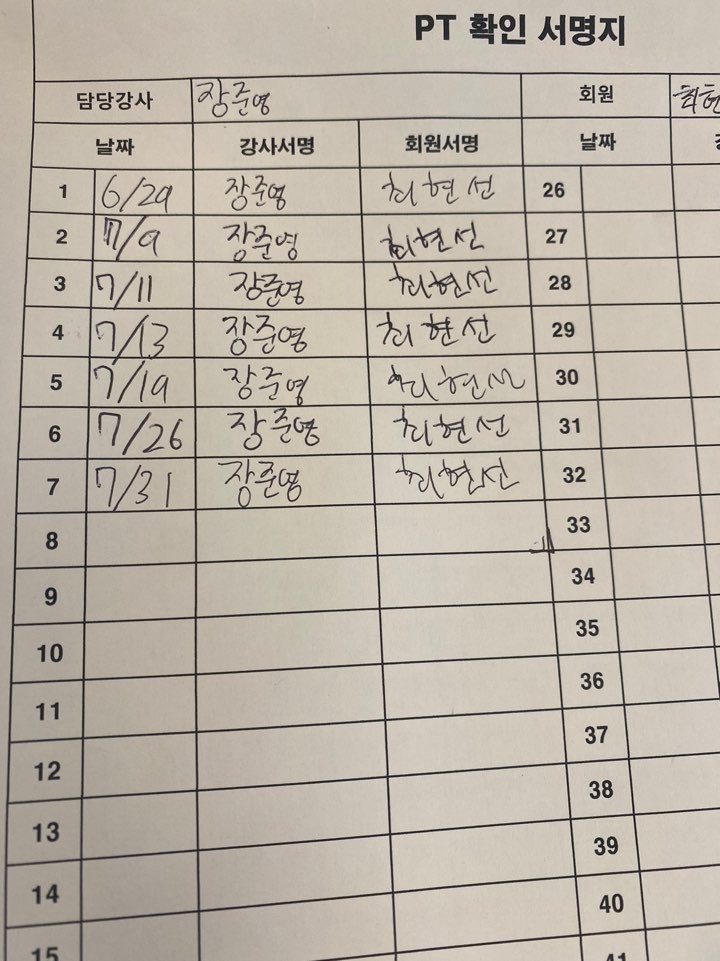 PT 확인 서명지
담당강사 장준영 회원 최현
날짜 강사서명 회원서명 날짜
1 6/29 장준영 최현선 26
2 7/9 장준영 최현선 27
3 7/11 장준영 최현선 28
4 7/13 장준영 최현선 29
5 7/19 장준영 최현선 30
6 7/26 장준영 최현선 31
7 7/31 장준영 최현선 32
8 33
9 34
10 35
11 36
12 37
13 38
14 39
15 40
41